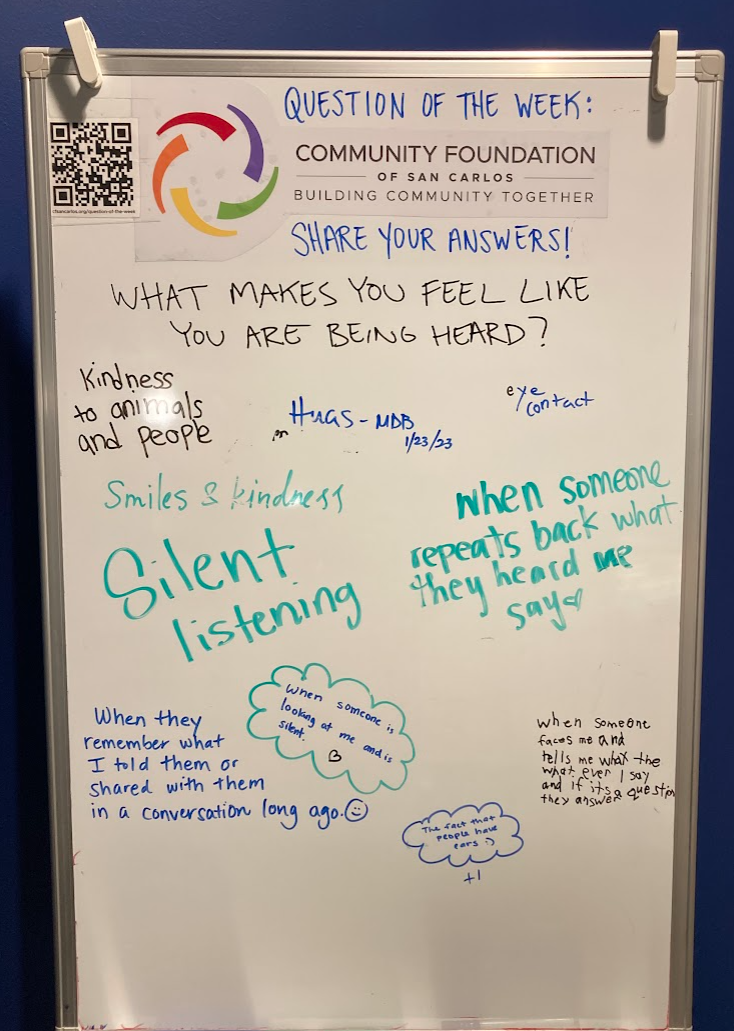 QUESTION OF THE WEEK:
COMMUNITY FOUNDATION
OF SAN CARLOS
BUILDING COMMUNITY TOGETHER
SHARE YOUR ANSWERS!
WHAT MAKES YOU FEEL LIKE
YOU ARE BEING HEARD?
Kindness
to animals
and people
HUGS - MDB
1/23/23
eye
contact
Smiles & kindness
Silent
listening
when someone
repeats back what
they heard me
say
When they
remember what
I told them or
shared with them
in a conversation long ago.
When someone is
looking at me and is
silent.
when someone
faces me and
tells me what the
what ever I say
and if its a question
they answer
The fact that
people have
ears :)
+1